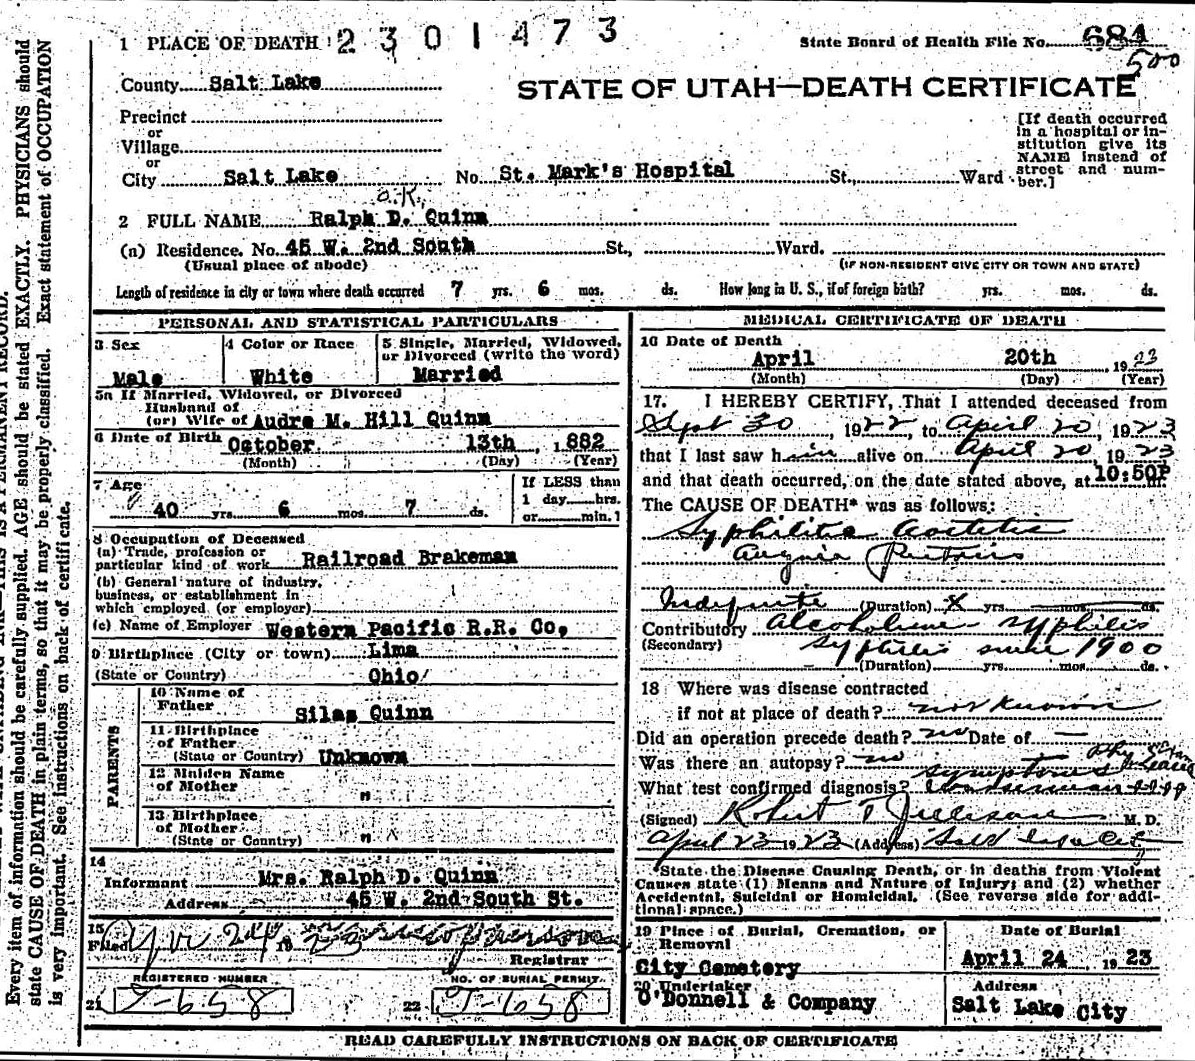 2 3 0 1 4 7 3
1 PLACE OF DEATH
State Board of Health File No. 684
500
County Salt Lake
STATE OF UTAH—DEATH CERTIFICATE
Precinct
or
Village
or
City Salt Lake No. St. Mark's Hospital St., Ward
[If death occurred
in a hospital or in-
stitution give its
NAME instead of
street and num-
ber.]
O.K.
2 FULL NAME Ralph D. Quinn
(a) Residence. No. 45 W. 2nd South St., Ward.
(Usual place of abode)
(IF NON-RESIDENT GIVE CITY OR TOWN AND STATE)
Length of residence in city or town where death occurred 7 yrs. 6 mos. ds. How long in U. S., if of foreign birth? yrs. mos. ds.
PERSONAL AND STATISTICAL PARTICULARS
3 Sex
Male
4 Color or Race
White
5 Single, Married, Widowed,
or Divorced (write the word)
Married
5a If Married, Widowed, or Divorced
Husband of
(or) Wife of Audre M. Hill Quinn
6 Date of Birth October 13th, 1882
(Month) (Day) (Year)
7 Age
40 yrs. 6 mos. 7 ds.
If LESS than
1 day hrs.
or min.]
8 Occupation of Deceased
(a) Trade, profession or
particular kind of work Railroad Brakeman
(b) General nature of industry,
business, or establishment in
which employed (or employer)
(c) Name of Employer Western Pacific R.R. Co,
9 Birthplace (City or town) Lima
(State or Country) Ohio
PARENTS
10 Name of
Father
Silas Quinn
11 Birthplace
of Father
(State or Country) Unknown
12 Maiden Name
of Mother
"
13 Birthplace
of Mother
(State or Country) "
14
Informant Mrs. Ralph D. Quinn
Address 45 W. 2nd South St.
15
Filed 24 19 23
Registrar
REGISTERED NUMBER
21 J-658
NO. OF BURIAL PERMIT
22 J-658
MEDICAL CERTIFICATE OF DEATH
16 Date of Death
April 20th 1923
(Month) (Day) (Year)
17. I HEREBY CERTIFY, That I attended deceased from
Sept 30, 1922, to April 20, 1923
that I last saw him alive on April 20, 1923
and that death occurred, on the date stated above, at 10:50P m.
The CAUSE OF DEATH* was as follows:
Syphilitic Aortitis
Angina Pectoris
Indefinite (Duration) X yrs. mos. ds.
Contributory Alcoholism Syphilis
(Secondary) Syphilis since 1900
(Duration) yrs. mos. ds.
18 Where was disease contracted
if not at place of death? not known
Did an operation precede death? no Date of —
Was there an autopsy? no
symptoms
What test confirmed diagnosis? Wasserman ++++
(Signed) Robert T M. D.
April 23 1923 (Address) Salt Lake City
*State the Disease Causing Death, or in deaths from Violent
Causes state (1) Means and Nature of Injury; and (2) whether
Accidental, Suicidal or Homicidal. (See reverse side for addi-
tional space.)
19 Place of Burial, Cremation, or
Removal
City Cemetery
Date of Burial
April 24 1923
20 Undertaker
O'Donnell & Company
Address
Salt Lake City
READ CAREFULLY INSTRUCTIONS ON BACK OF CERTIFICATE
THIS IS A PERMANENT RECORD.
Every item of information should be carefully supplied. AGE should be stated EXACTLY. PHYSICIANS should
state CAUSE OF DEATH in plain terms, so that it may be properly classified. Exact statement of OCCUPATION
is very important. See instructions on back of certificate.